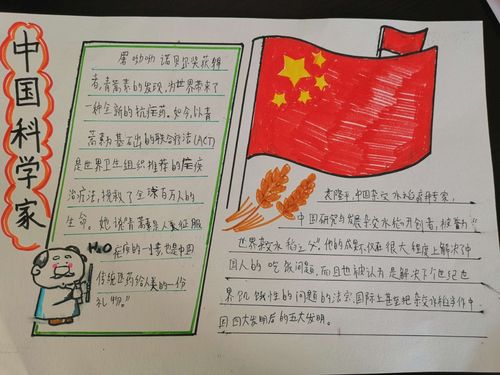 中国科学家
屠呦呦 诺贝尔奖获得
者,青蒿素的发现,为世界带来了
一种全新的抗疟药。如今,以青
蒿素为基础的联合疗法(ACT)
是世界卫生组织推荐的疟疾
治疗法,挽救了全球百万人的
生命。她说青蒿素是人类征服
疟疾的一小步,也是中国
传统医药给人类的一份
礼物。”
H₂O
袁隆平,中国杂交水稻育种专家,
中国研究与发展杂交水稻的开创者,被誉为“
世界杂交水稻之父”。他的成就不仅很大程度上解决了中
国人的吃饭问题,而且也被认为是解决下个世纪世
界饥饿性的问题的法宝,国际上甚至把杂交水稻当作中
国四大发明后的五大发明。